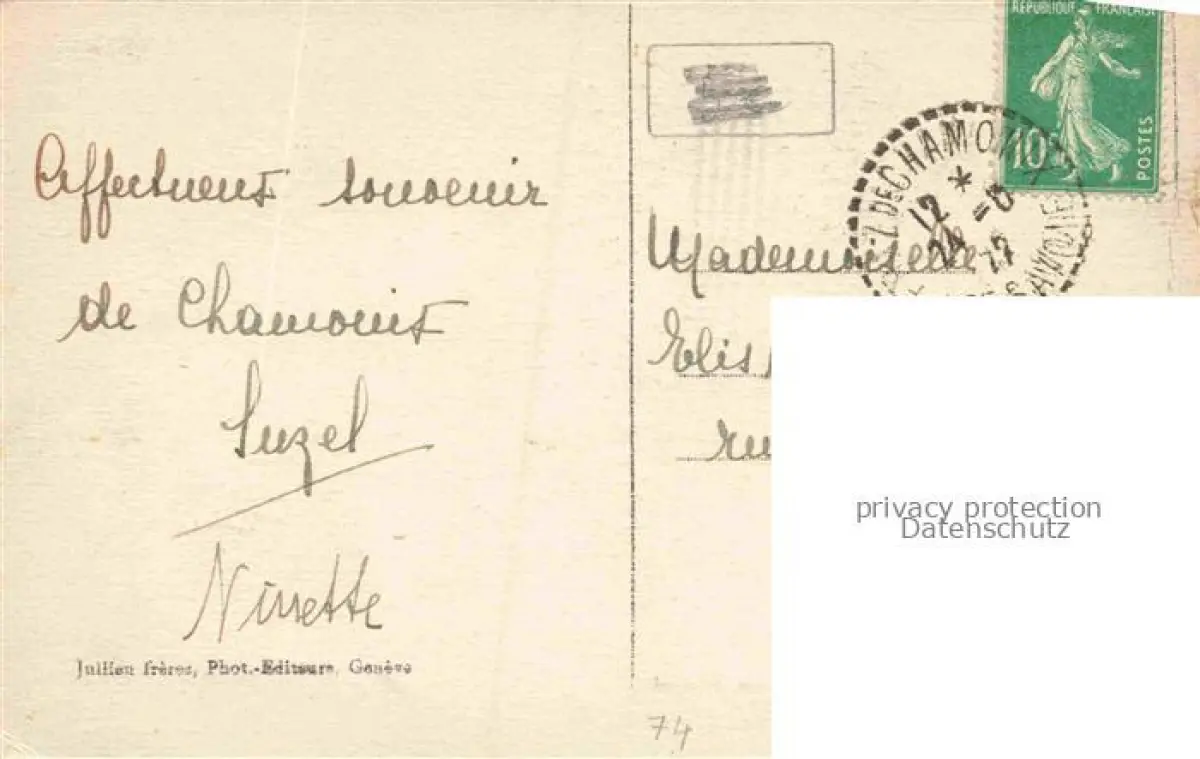 Affectueux souvenir
de Chamonix
Suzel
Ninette
Jullien frères, Phot.-Editeurs, Genève
RÉPUBLIQUE FRANÇAISE
10c
POSTES
DE CHAMONIX
12 *
24 -8
22
SAVOIE
Mademoiselle
Elis
Ru
privacy protection
Datenschutz
74